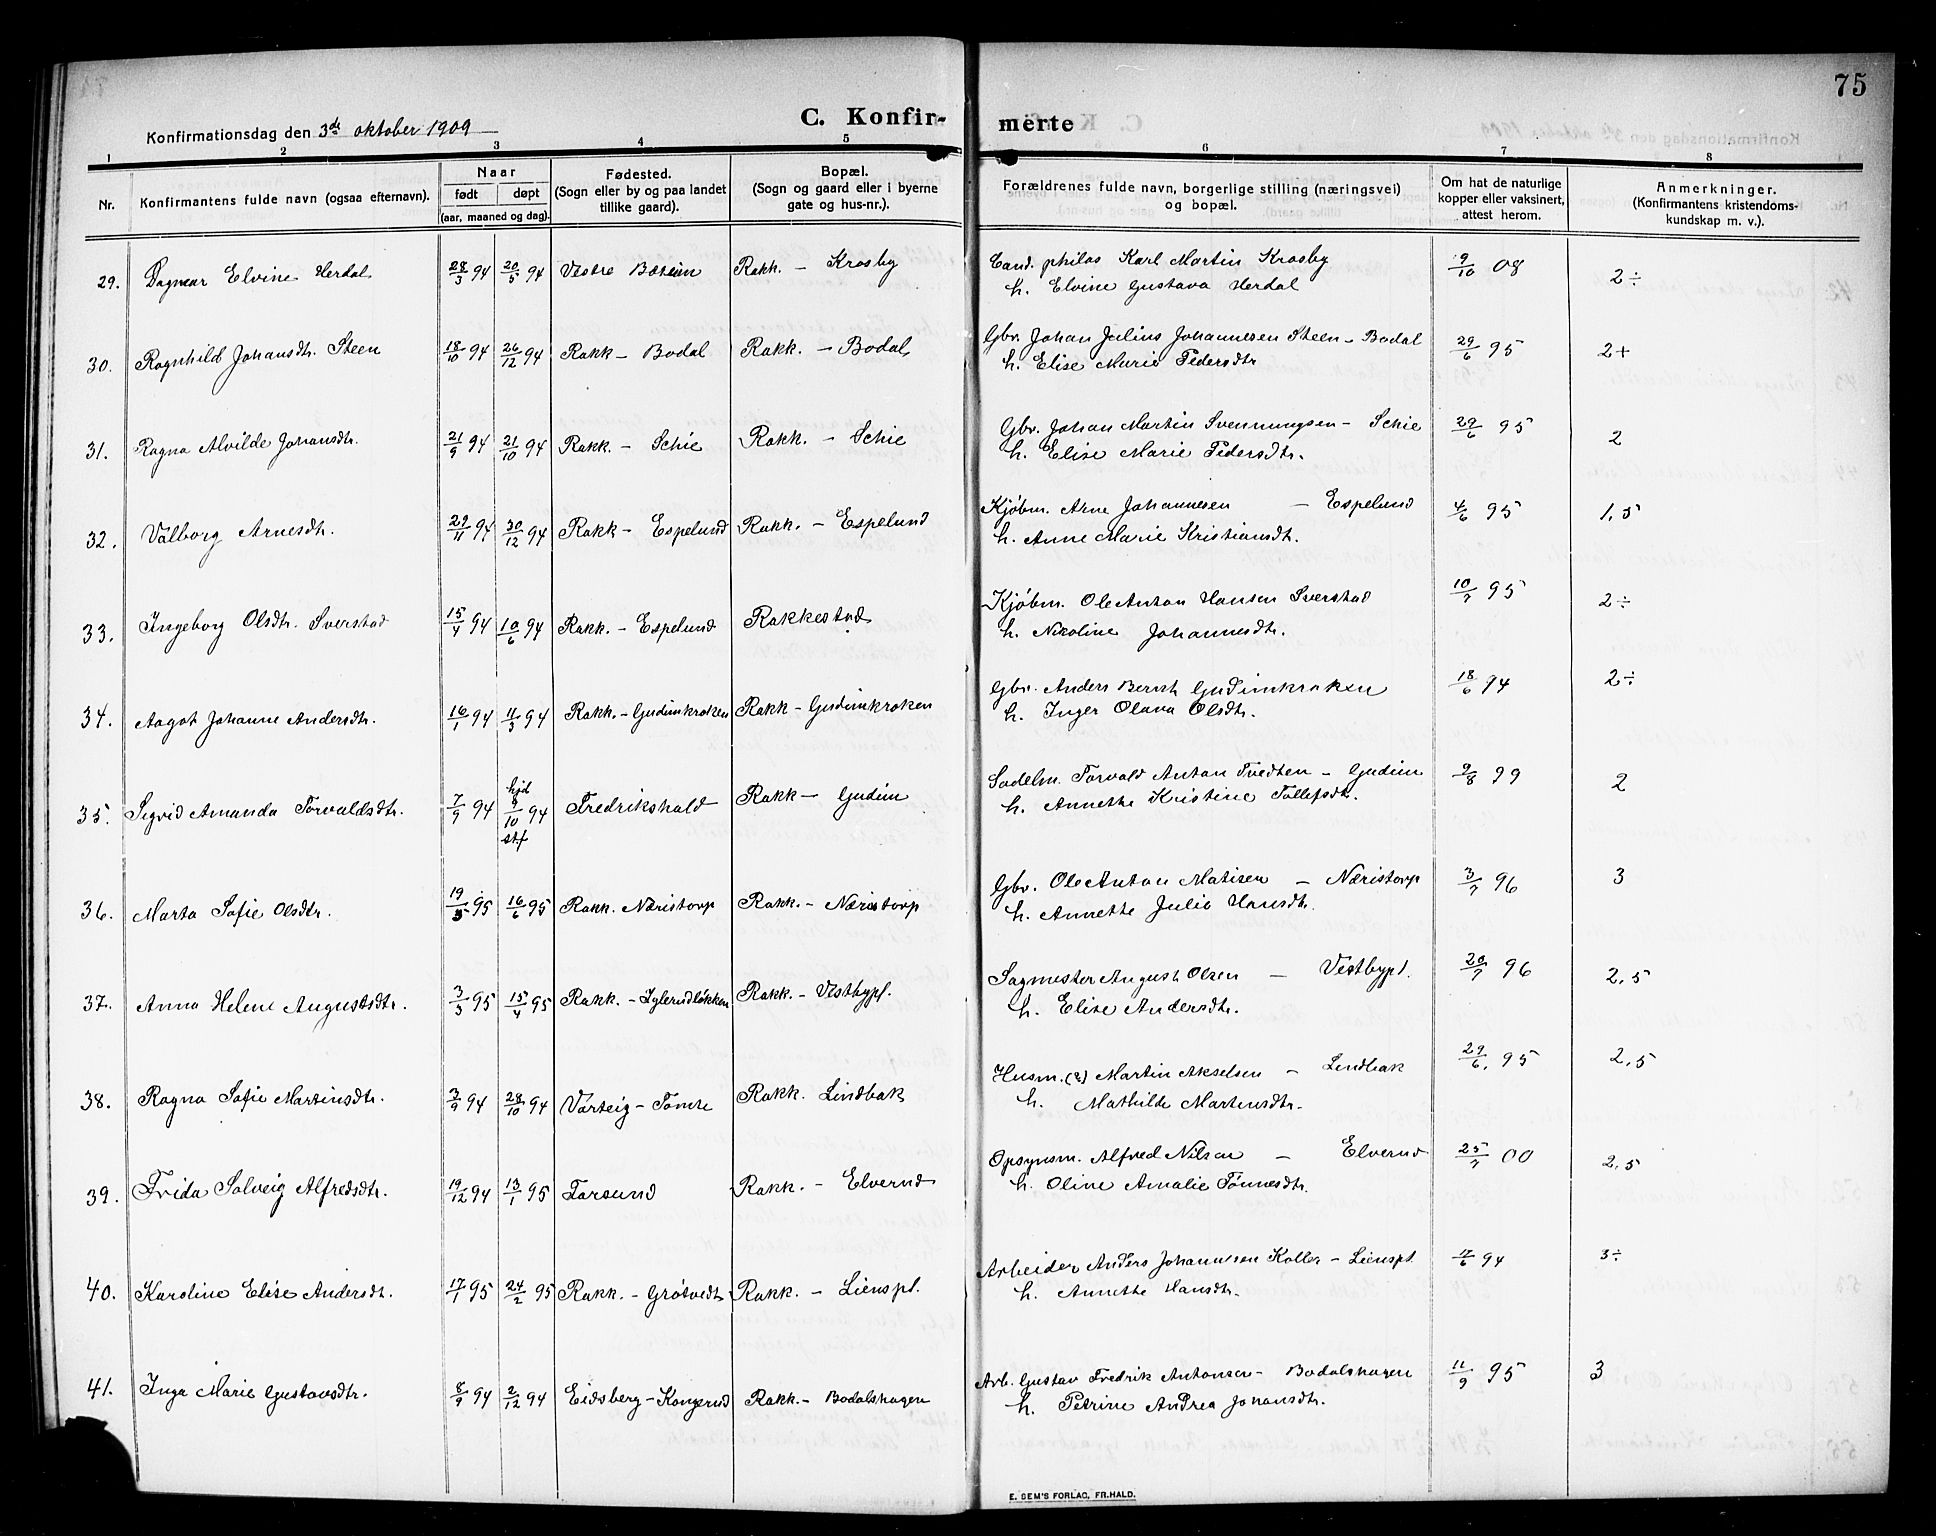 75
C. Konfir- merte
Konfirmationsdag den 3de oktober 1909
1 2 3 4 5 6 7 8
Nr. | Konfirmantens fulde navn (ogsaa efternavn). | Naar født døpt (aar, maaned og dag). | Fødested. (Sogn eller by og paa landet tillike gaard). | Bopæl. (Sogn og gaard eller i byerne gate og hus-nr.). | Forældrenes fulde navn, borgerlige stilling (næringsvei) og bopæl. | Om hat de naturlige kopper eller vaksinert, attest herom. | Anmerkninger. (Konfirmantens kristendoms-kundskap m. v.).
29. Dagmar Elvine Herdal 28/3 94 20/5 94 Vestre Bærum Rakk. - Krosby Cand. philos Karl Martin Krosby 9/10 08 2÷
h. Elvine Gustava Herdal
30. Ragnhild Johansdtr. Steen 18/10 94 26/12 94 Rakk - Bodal Rakk. - Bodal Gbr. Johan Julius Johannesen Steen - Bodal 29/6 95 2+
h. Elise Marie Pedersdtr
31. Ragna Alvilde Johansdtr. 21/9 94 21/10 94 Rakk. - Schie Rakk. - Schie Gbr. Johan Martin Svenningsen - Schie 29/6 95 2
h. Elise Marie Pedersdtr.
32. Valborg Arnesdtr. 29/11 94 30/12 94 Rakk - Espelund Rakk. - Espelund Kjøbm. Arne Johannesen - Espelund 4/6 95 1,5
h. Anne Marie Kristiansdtr.
33. Ingeborg Olsdtr. Sverstad 15/4 94 10/6 94 Rakk. - Espelund Rakkestad Kjøbm. Ole Anton Hansen Sverstad 10/7 95 2÷
h. Nikoline Johannesdtr.
34. Aagot Johanne Andersdtr. 16/1 94 11/3 94 Rakk. - Gudimkroken Rakk - Gudimkroken Gbr. Anders Bernt Gudimkroken 18/6 94 2÷
h. Inger Olava Olsdtr.
35. Sigrid Amanda Torvaldsdtr. 7/9 94 hjd 9/10 94 stf Fredrikshald Rakk - Gudim Sadelm. Torvald Anton Tvedten - Gudim 9/8 99 2
h. Annette Kristine Tollefsdtr.
36. Marta Sofie Olsdtr. 19/5 95 16/6 95 Rakk. Næristorp Rakk. - Næristorp Gbr. Ole Anton Matisen - Næristorp 3/7 96 3
h. Annette Julie Hansdtr.
37. Anna Helene Augustsdtr. 3/3 95 15/4 95 Rakk. - Iglerudløkken Rakk. - Vestbypl. Sagmester August Olsen - Vestbypl. 20/7 96 2,5
h. Elise Andersdtr.
38. Ragna Sofie Martinsdtr. 3/9 94 28/10 94 Varteig - Tomte Rakk. Lindbak Husm. (?) Martin Akselsen - Lindbak 29/6. 95 2,5
h. Mathilde Martinsdtr.
39. Frida Solveig Alfredsdtr. 19/12 94 13/1 95 Farsund Rakk. - Elverud Opsynsm. Alfred Nilsen - Elverud 25/7 00 2,5
h. Oline Amalie Tønnesdtr.
40. Karoline Elise Andersdtr. 17/1 95 24/2 95 Rakk. - Grøtvedt Rakk. - Lienspl. Arbeider Anders Johannesen Koller - Lienspl 17/6 94 3÷
h. Annette Hansdtr.
41. Inga Marie Gustavsdtr. 8/9 94 2/12 94 Eidsberg - Kongerud Rakk. - Bodalshagen Arb. Gustav Fredrik Antonsen - Bodalshagen 11/9 95 3
h. Petrine Andrea Johansdtr.
E. SEM'S FORLAG, FR.HALD.